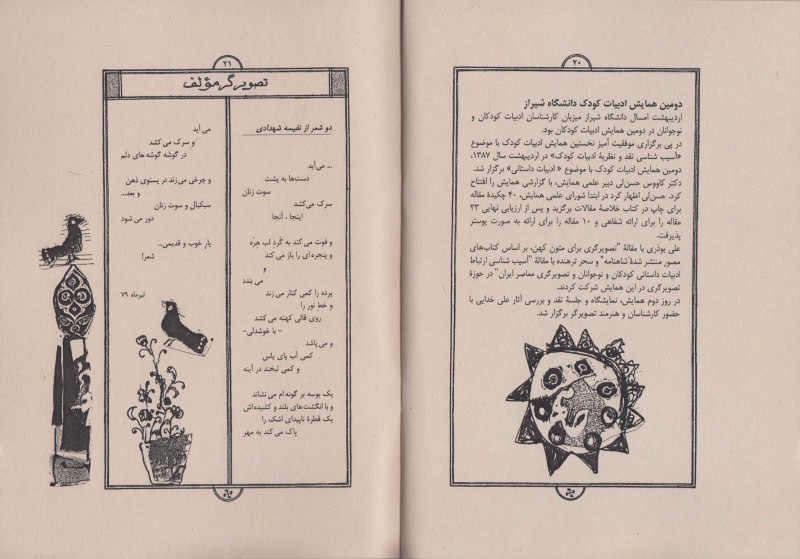 ۲۰
دومین همایش ادبیات کودک دانشگاه شیراز
اردیبهشت امسال دانشگاه شیراز میزبان کارشناسان ادبیات کودکان و
نوجوانان در دومین همایش ادبیات کودکان بود.
در پی برگزاری موفقیت آمیز نخستین همایش ادبیات کودک با موضوع
«آسیب شناسی نقد و نظریهٔ ادبیات کودک» در اردیبهشت سال ۱۳۸۷،
دومین همایش ادبیات کودک با موضوع « ادبیات داستانی» برگزار شد.
دکتر کاووس حسن‌لی دبیر علمی همایش، با گزارشی همایش را افتتاح
کرد. حسن‌لی اظهار کرد در ابتدا شورای علمی همایش، ۴۰ چکیدهٔ مقاله
برای چاپ در کتاب خلاصهٔ مقالات برگزید و پس از ارزیابی نهایی ۲۳
مقاله را برای ارائه شفاهی و ۱۰ مقاله را برای ارائه به صورت پوستر
پذیرفت.
علی بوذری با مقالهٔ "تصویرگری برای متون کهن، بر اساس کتاب‌های
مصور منتشر شدهٔ شاهنامه" و سحر ترهنده با مقالهٔ "آسیب شناسی ارتباط
ادبیات داستانی کودکان و نوجوانان و تصویرگری معاصر ایران" در حوزهٔ
تصویرگری در این همایش شرکت کردند.
در روز دوم همایش، نمایشگاه و جلسهٔ نقد و بررسی آثار علی خدایی با
حضور کارشناسان و هنرمند تصویرگر برگزار شد.
۲۱
تصویرگر مؤلف
دو شعر از نفیسه شهدادی
... می‌آید
دست‌ها به پشت
سوت زنان
سرک می‌کشد
اینجا ، آنجا
و فوت می کند به گَردِ لب هِرّه
و پنجره ای را باز می کند
و
می بندد
پرده را کمی کنار می زند
و خطِ نور را
روی قالی کهنه می کشد
- با خوشدلی-
و می پاشد
کمی آب پای یاس
و کمی لبخند در آینه
یک بوسه بر گونه‌ام می نشاند
و با انگشت‌های بلند و کشیده‌اش
یک قطرهٔ ناپیدای اشک را
پاک می کند به مهر
می آید
و سرک می کشد
در گوشه گوشه‌های دلم
و چرخی می‌زند در پستوی ذهن
و بعد...
سبکبال و سوت زنان
دور می شود
یارِ خوب و قدیمی...
شعر!
تیرماه ۷۹